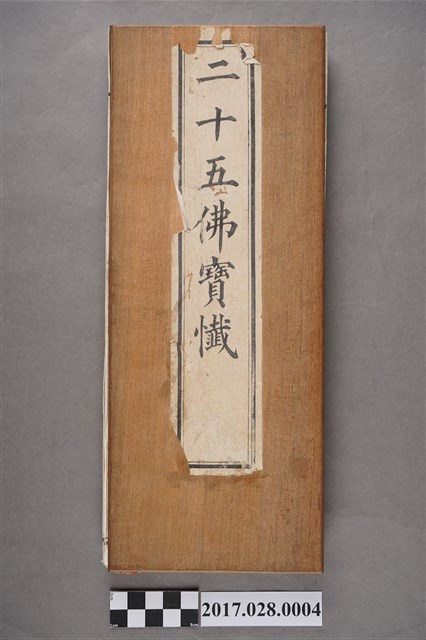 二十五佛寶懺
2017.028.0004